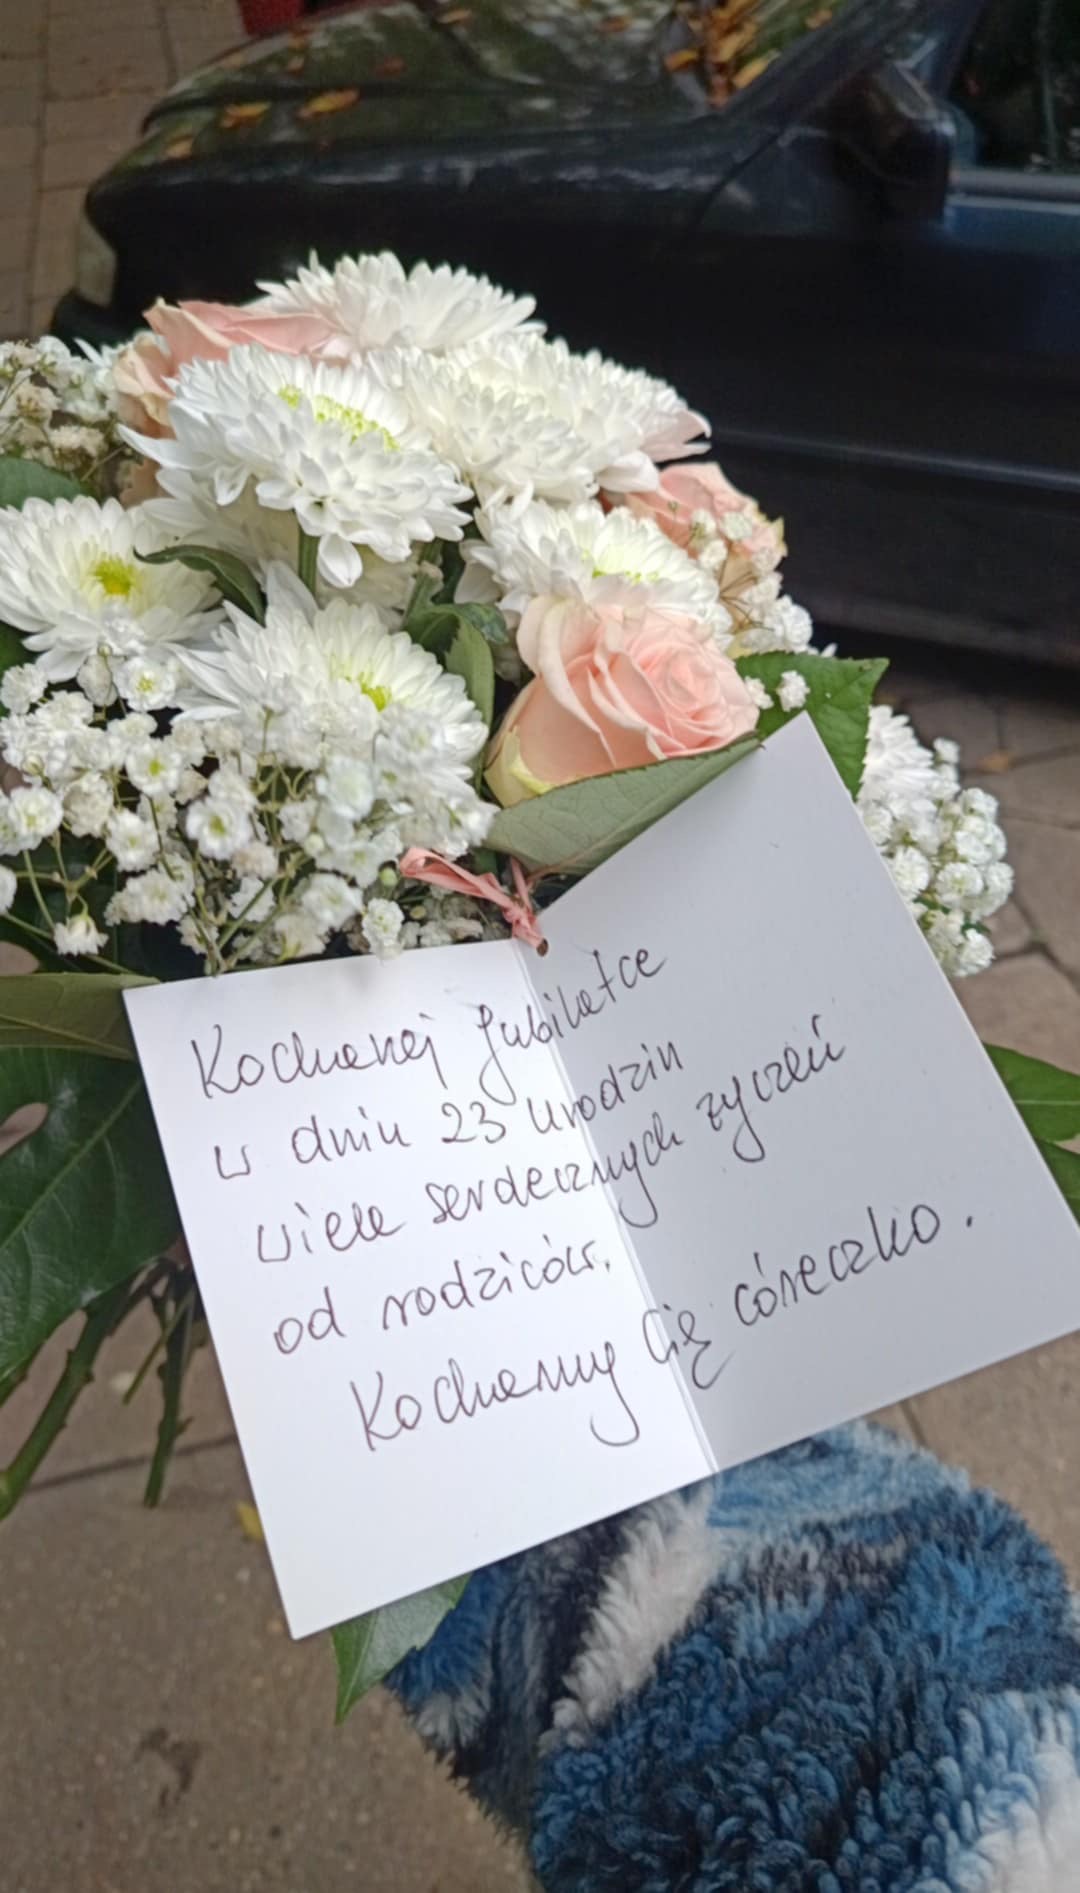 Kochanej Jubilatce
w dniu 23 urodzin
wiele serdecznych życzeń
od rodziców.
Kochamy Cię córeczko.